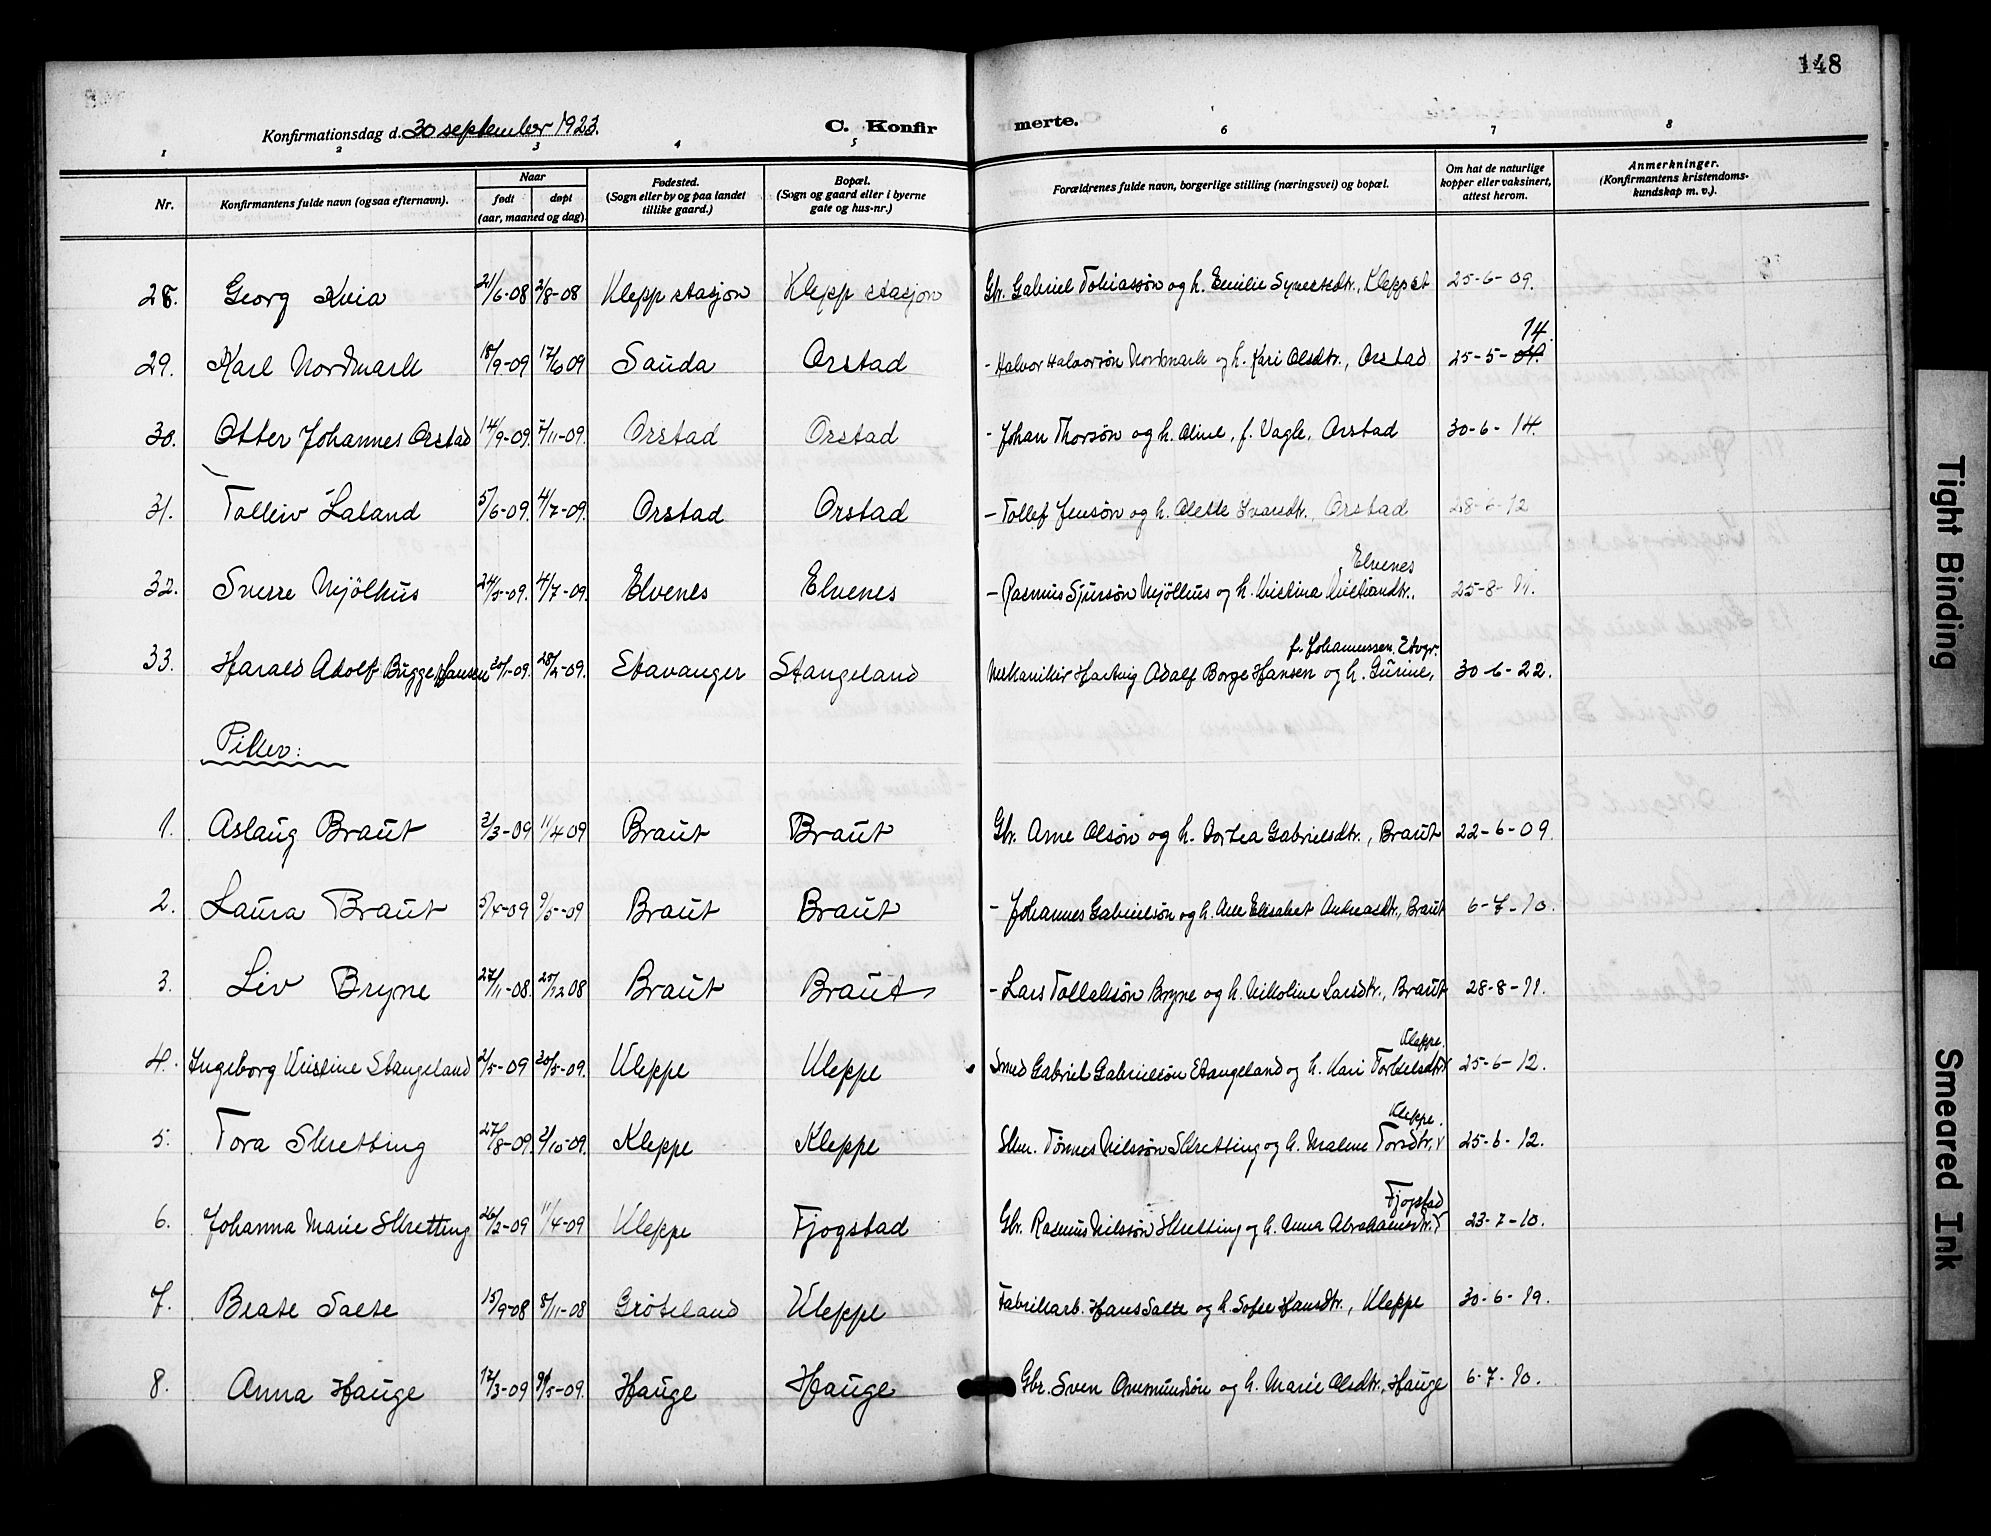 148
Konfirmationsdag d. 30 september 1923.
C. Konfirmerte.
1 2 3 4 5 6 7 8
Nr.
Konfirmantens fulde navn (ogsaa efternavn).
Naar
født døpt
(aar, maaned og dag).
Fødested.
(Sogn eller by og paa landet
tillike gaard.)
Bopæl.
(Sogn og gaard eller i byerne
gate og hus-nr.)
Forældrenes fulde navn, borgerlige stilling (næringsvei) og bopæl.
Om hat de naturlige
kopper eller vaksinert,
attest herom.
Anmerkninger.
(Konfirmantens kristendoms-
kundskap m. v.).
28. Georg Kvia 21/6-08 2/8-08 Klepp stasjon Klepp stasjon Gbr. Gabriel Tobiassøn og h. Emilie Syvertsdtr., Klepp st 25-6-09.
14.
29. Karl Nordmark 18/9-09 17/6 09 Sauda Orstad - Halvor Halvorsøn Nordmark og h. Kari Olsdtr., Orstad 25-5-09.
30. Otter Johannes Orstad 14/9-09. 7/11-09. Orstad Orstad - Johan Thorsøn og h. Oline, f. Vagle, Orstad 30-6-14.
31. Tolleiv Laland 5/6-09. 4/7-09. Orstad Orstad - Tollef Jensøn og h. Olette Ivarsdtr., Orstad 28-6-12
Elvenes
32. Sverre Mjölhus 24/5-09. 4/7-09. Elvenes Elvenes - Rasmus Sjursøn Mjölhus og h. Kristina Kristiandtr., 25-8-11.
f. Johannessen, Stvgr.
33. Harald Adolf Bugge Hansen 30/1-09. 28/2-09. Stavanger Stangeland Mekaniker Hartvig Adolf Borge Hansen og h. Gurine, 30-6-22.
Piker:
1. Aslaug Braut 2/3-09 11/4 09 Braut Braut Gbr. Arne Olsøn og h. Dortea Gabrielsdtr., Braut 22-6-09.
2. Laura Braut 5/4-09 9/5-09 Braut Braut - Johannes Gabrielsøn og h. Ane Elisabet Andreasdtr., Braut 6-7-10.
3. Liv Bryne 27/11-08. 25/12 08 Braut Braut - Lars Tollaksøn Bryne og h. Nikoline Larsdtr., Braut 28-8-11.
Kleppe.
4. Ingeborg Kristine Stangeland 2/5-09 20/5-09. Kleppe Kleppe Smed Gabriel Gabrielsøn Stangeland og h. Kari Torkelsdtr. 25-6-12.
Kleppe.
5. Tora Skretting 27/8-09. 3/10-09. Kleppe Kleppe Skm. Tönnes Nilssøn Skretting og h. Malene Torsdtr., 25-6-12.
Fjogstad
6. Johanna Marie Skretting 26/2-09 11/4-09 Kleppe Fjogstad Gbr. Rasmus Nilssøn Skretting og h. Anna Abrahamsdtr. 23-7-10.
7. Beate Salte 15/9-08 8/11-08 Gröteland Kleppe Fabrikarb. Hans Salte og h. Sofie Hansdtr., Kleppe 30-6-19.
8. Anna Hauge 17/3-09 9/5-09. Hauge Hauge Gbr. Sven Omundsøn og h. Marie Olsdtr., Hauge 6-7-10.
Tight Binding
Smeared Ink